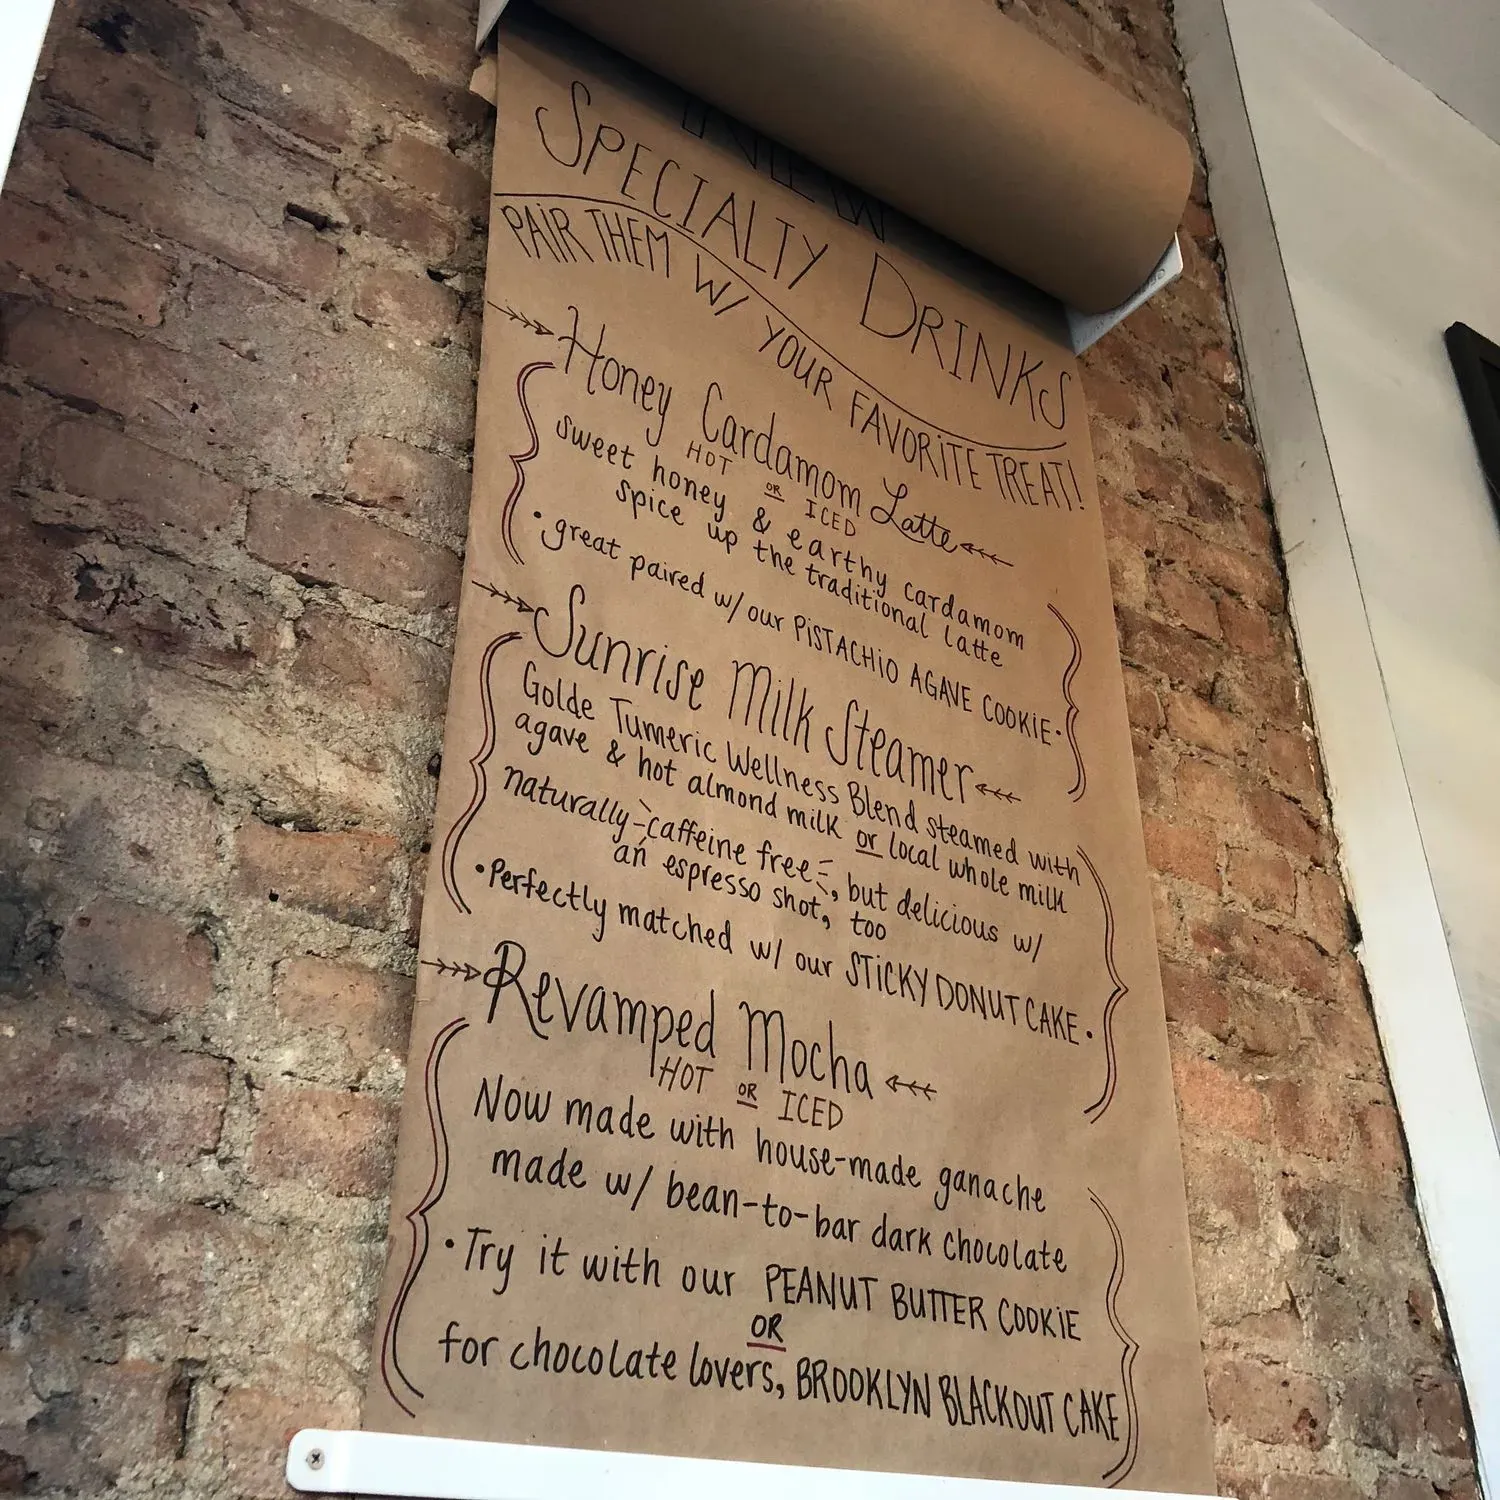 NEW
SPECIALTY DRINKS
PAIR THEM W/ YOUR FAVORITE TREAT!
Honey Cardamom Latte
HOT OR ICED
sweet honey & earthy cardamom
spice up the traditional latte
• great paired w/ our PISTACHIO AGAVE COOKIE •
Sunrise Milk Steamer
Golde Tumeric Wellness Blend steamed with
agave & hot almond milk or local whole milk
naturally caffeine free, but delicious w/
an espresso shot, too
• Perfectly matched w/ our STICKY DONUT CAKE •
Revamped Mocha
HOT OR ICED
Now made with house-made ganache
made w/ bean-to-bar dark chocolate
• Try it with our PEANUT BUTTER COOKIE
OR
for chocolate lovers, BROOKLYN BLACKOUT CAKE